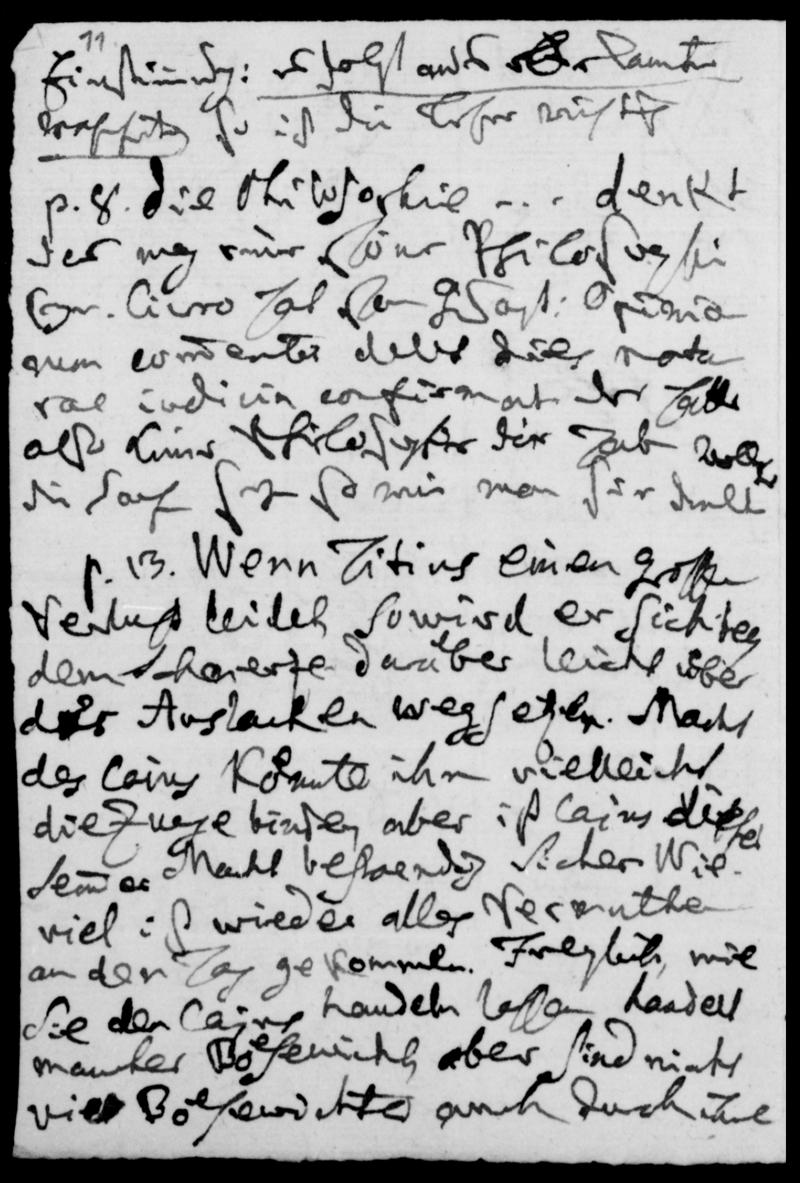 11
Einstimmig: es folgt aus
so ist die richtig
p. 8. die Philosophie - - - denkt
der mag eine schöne Philosophie
seyn. Cicero hat schon gesagt: Opinio
num commenta delet dies natu
rae iudicia confirmat der hatte
also keine Philosophie die hab
die so wie man sie denkt
p. 13. Wenn Titius einen großen
Verlust leidet so wird er sich bey
dem Schmerze darüber leicht über
das Auslachen wegsetzen. Macht
des Cajus könnte ihm vielleicht
die Zunge binden aber ist Cajus dieser
seiner Macht bestaendig sicher Wie-
viel ist wieder alles Vermuthen
an den Tag gekommen. Freylich, wie
Sie den Cajus handeln lassen handelt
mancher Boesewicht, aber sind nicht
viel Boesewichter auch durch ihre